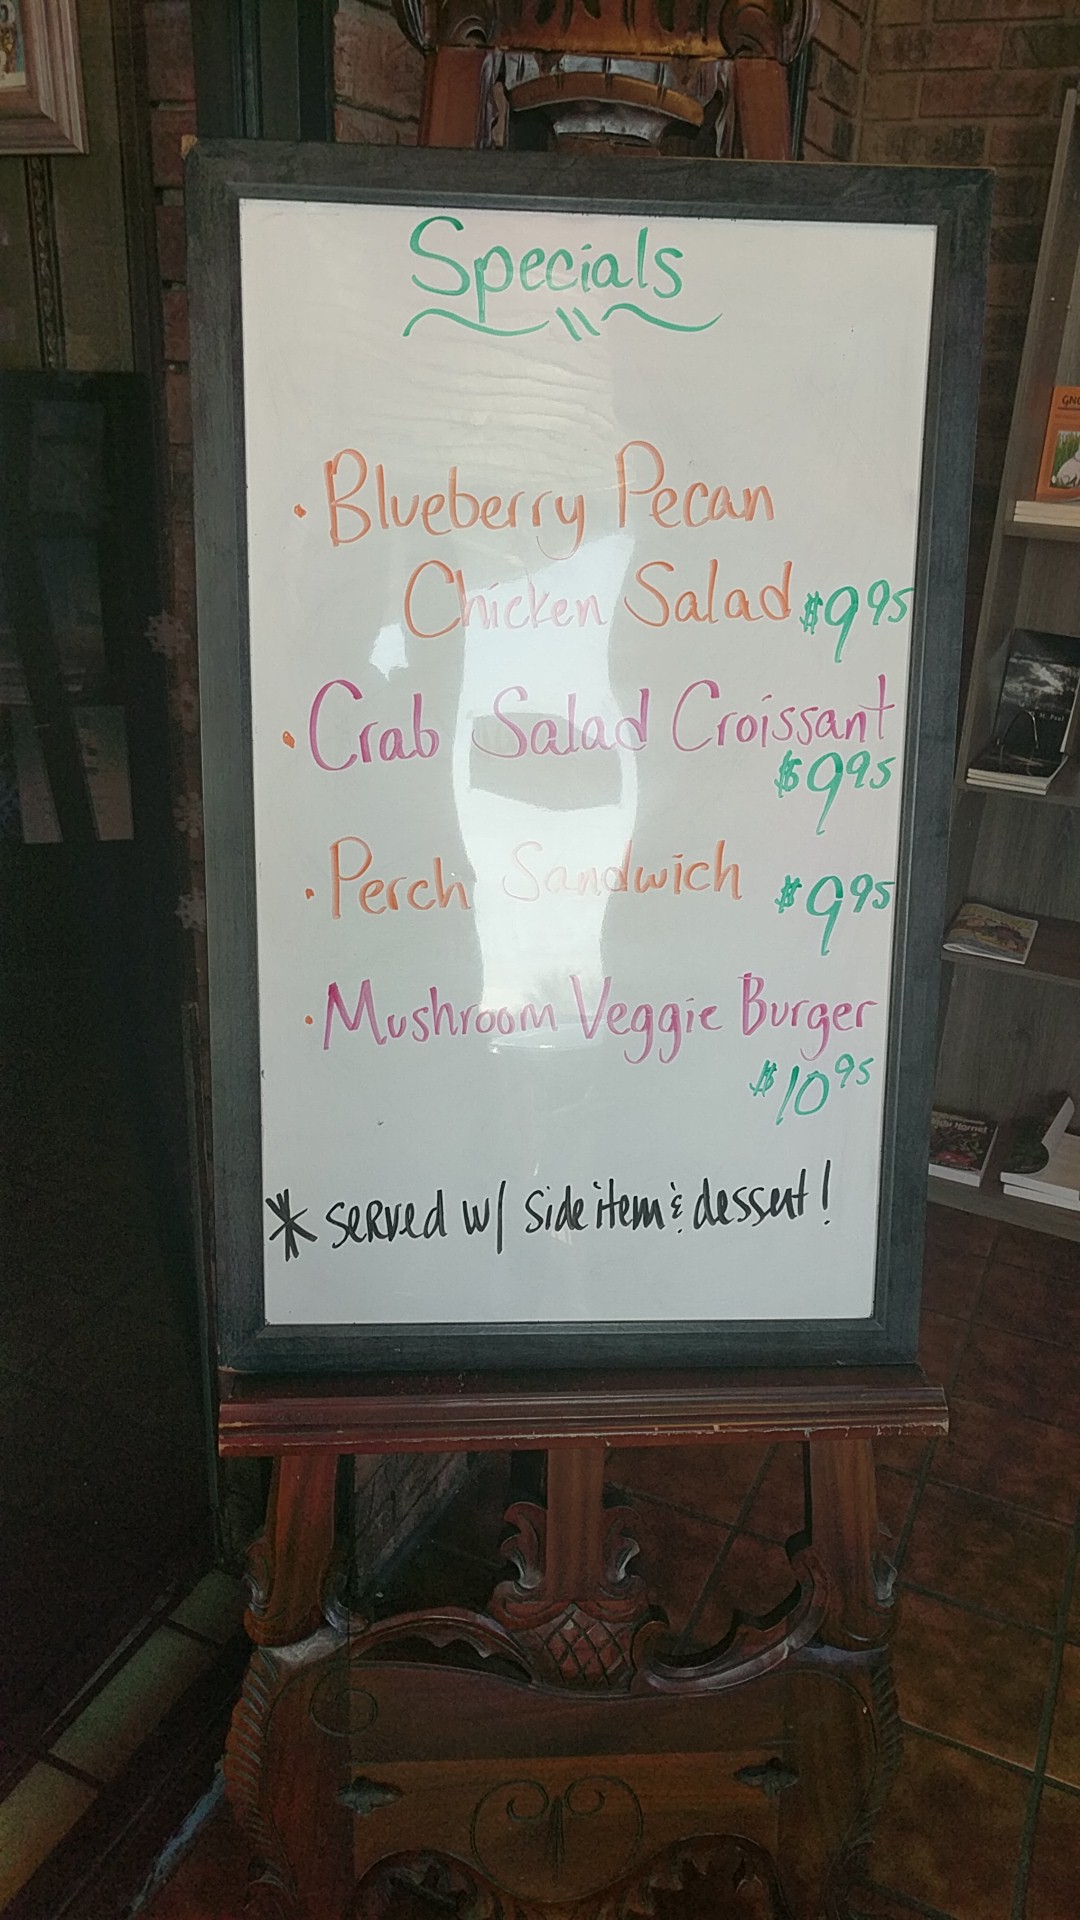 Specials
· Blueberry Pecan
Chicken Salad $9 95
· Crab Salad Croissant
$9 95
· Perch Sandwich $9 95
· Mushroom Veggie Burger
$10 95
* served w/ side item & dessert!